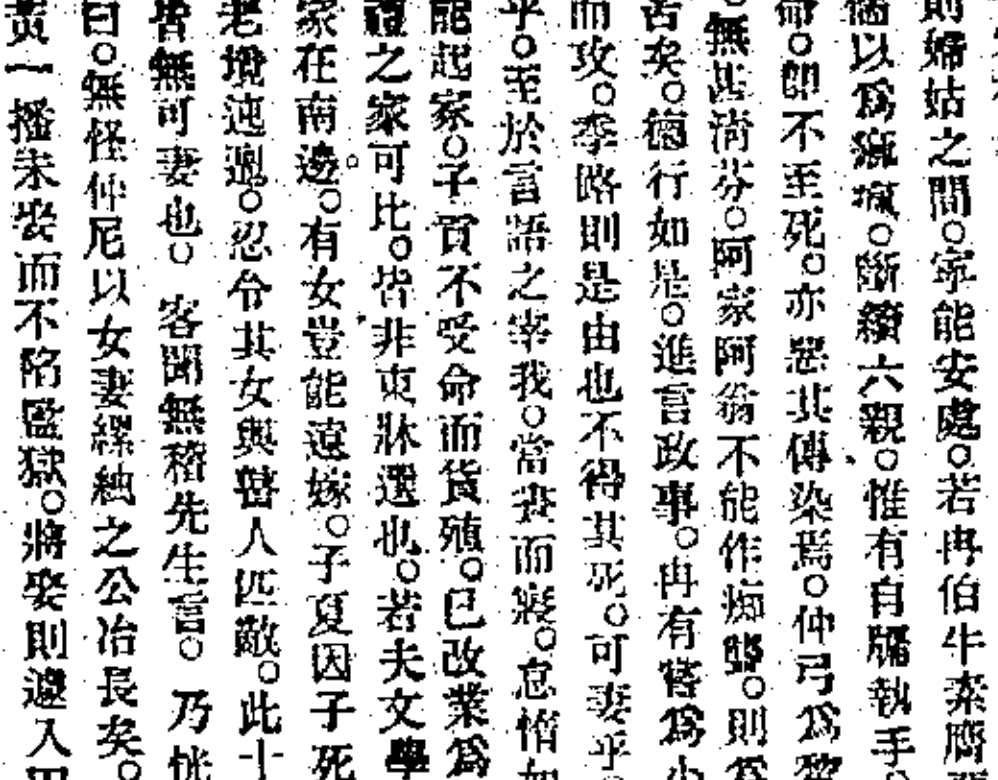 則婦姑之間。寧能安處。若冉伯牛素膺
以爲瘋。斷續六親。惟有自牖執手
命。卽不至死。亦惡其傳染焉。仲弓爲犂
無甚淸芬。阿家阿翁不能作痴聾。則爲
矣。德行如是。進言政事。冉有嘗爲小
而攻。季路則是由也不得其死。可妻乎。
乎。至於言語之宰我。當晝而寢。怠惰如
能起家。子貢不受命而貨殖。已改業爲
禮之家可比。皆非東牀選也。若夫文學
家在南邊。有女豈能遠嫁。子夏因子死
老境迍邅。忍令其女與瞽人匹敵。此十
皆無可妻也。客聞無稽先生言。乃恍
曰。無怪仲尼以女妻縲絏之公冶長矣。
責一播未娶而不陷監獄。將娶則遽入